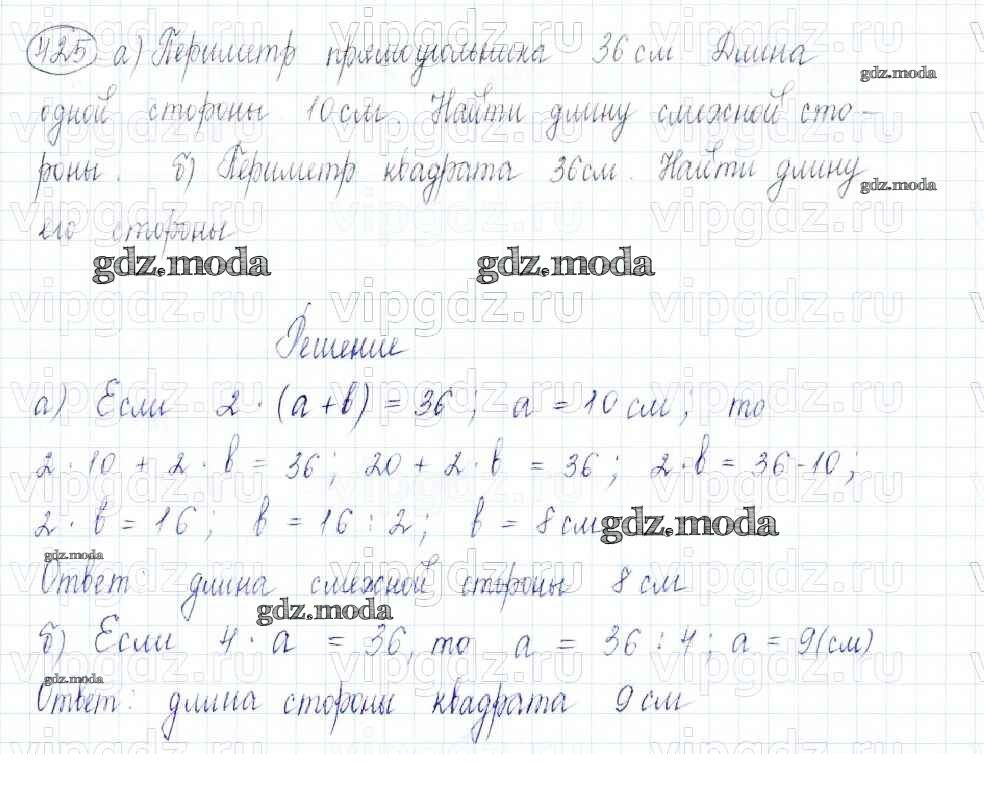 425 а) Периметр прямоугольника 36 см Длина
gdz.moda
одной стороны 10 см. Найти длину смежной сто-
роны. б) Периметр квадрата 36 см. Найти длину
gdz.moda
его стороны
gdz.moda gdz.moda
vipgdz.ru vipgdz.ru vipgdz.ru
Решение
а) Если 2 · (а + в) = 36 ; а = 10 см ; то
2 · 10 + 2 · в = 36 ; 20 + 2 · в = 36 ; 2 · в = 36 - 10 ;
2 · в = 16 ; в = 16 : 2 ; в = 8 см
gdz.moda
gdz.moda
Ответ: длина смежной стороны 8 см
gdz.moda
б) Если 4 · а = 36, то а = 36 : 4 ; а = 9 (см)
gdz.moda
Ответ: длина стороны квадрата 9 см